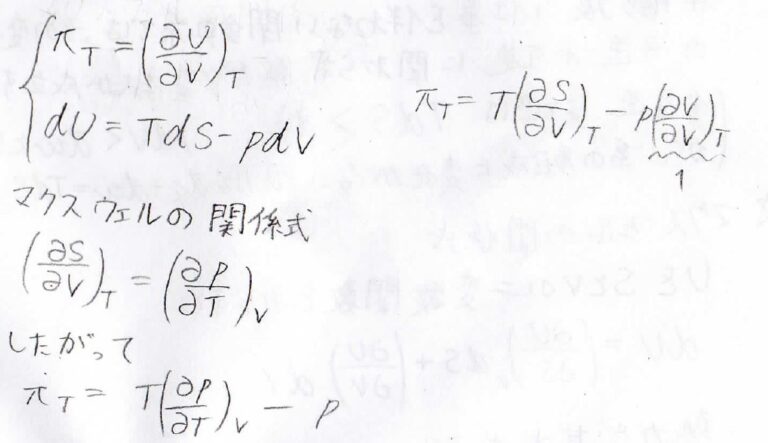 π_T = (∂U/∂V)_T
dU = TdS - pdV
π_T = T(∂S/∂V)_T - p(∂V/∂V)_T
1
マクスウェルの関係式
(∂S/∂V)_T = (∂p/∂T)_V
したがって
π_T = T(∂p/∂T)_V - p